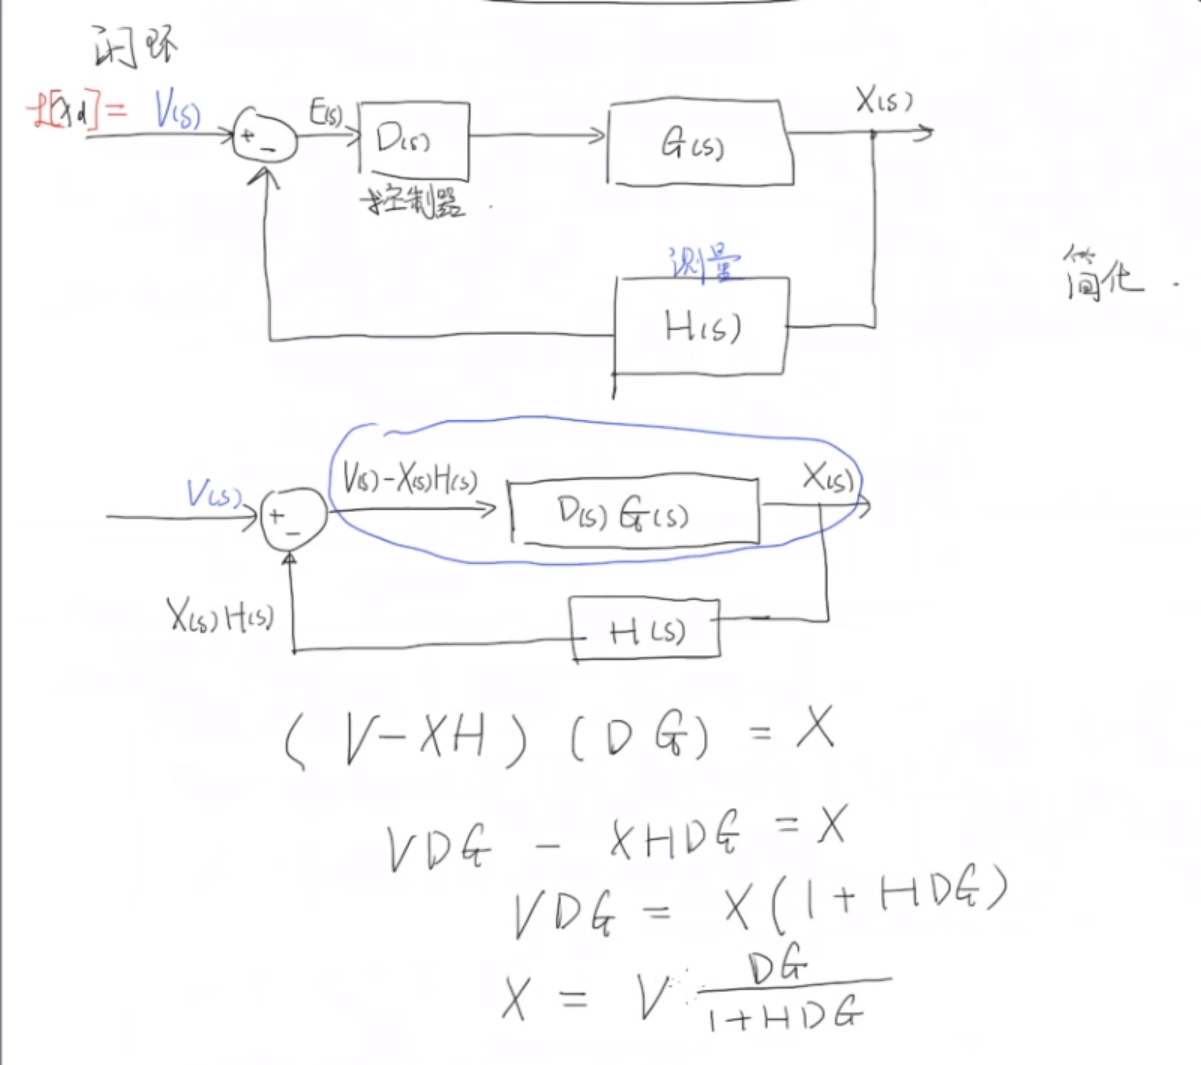 闭环
ℒ[Xd] = V(s)
+
−
E(s)
D(s)
G(s)
X(s)
控制器
测量
H(s)
简化
V(s)
+
−
V(s)-X(s)H(s)
D(s) G(s)
X(s)
X(s)H(s)
H(s)
(V-XH)(DG) = X
VDG - XHDG = X
VDG = X(1+HDG)
X = V · DG/(1+HDG)